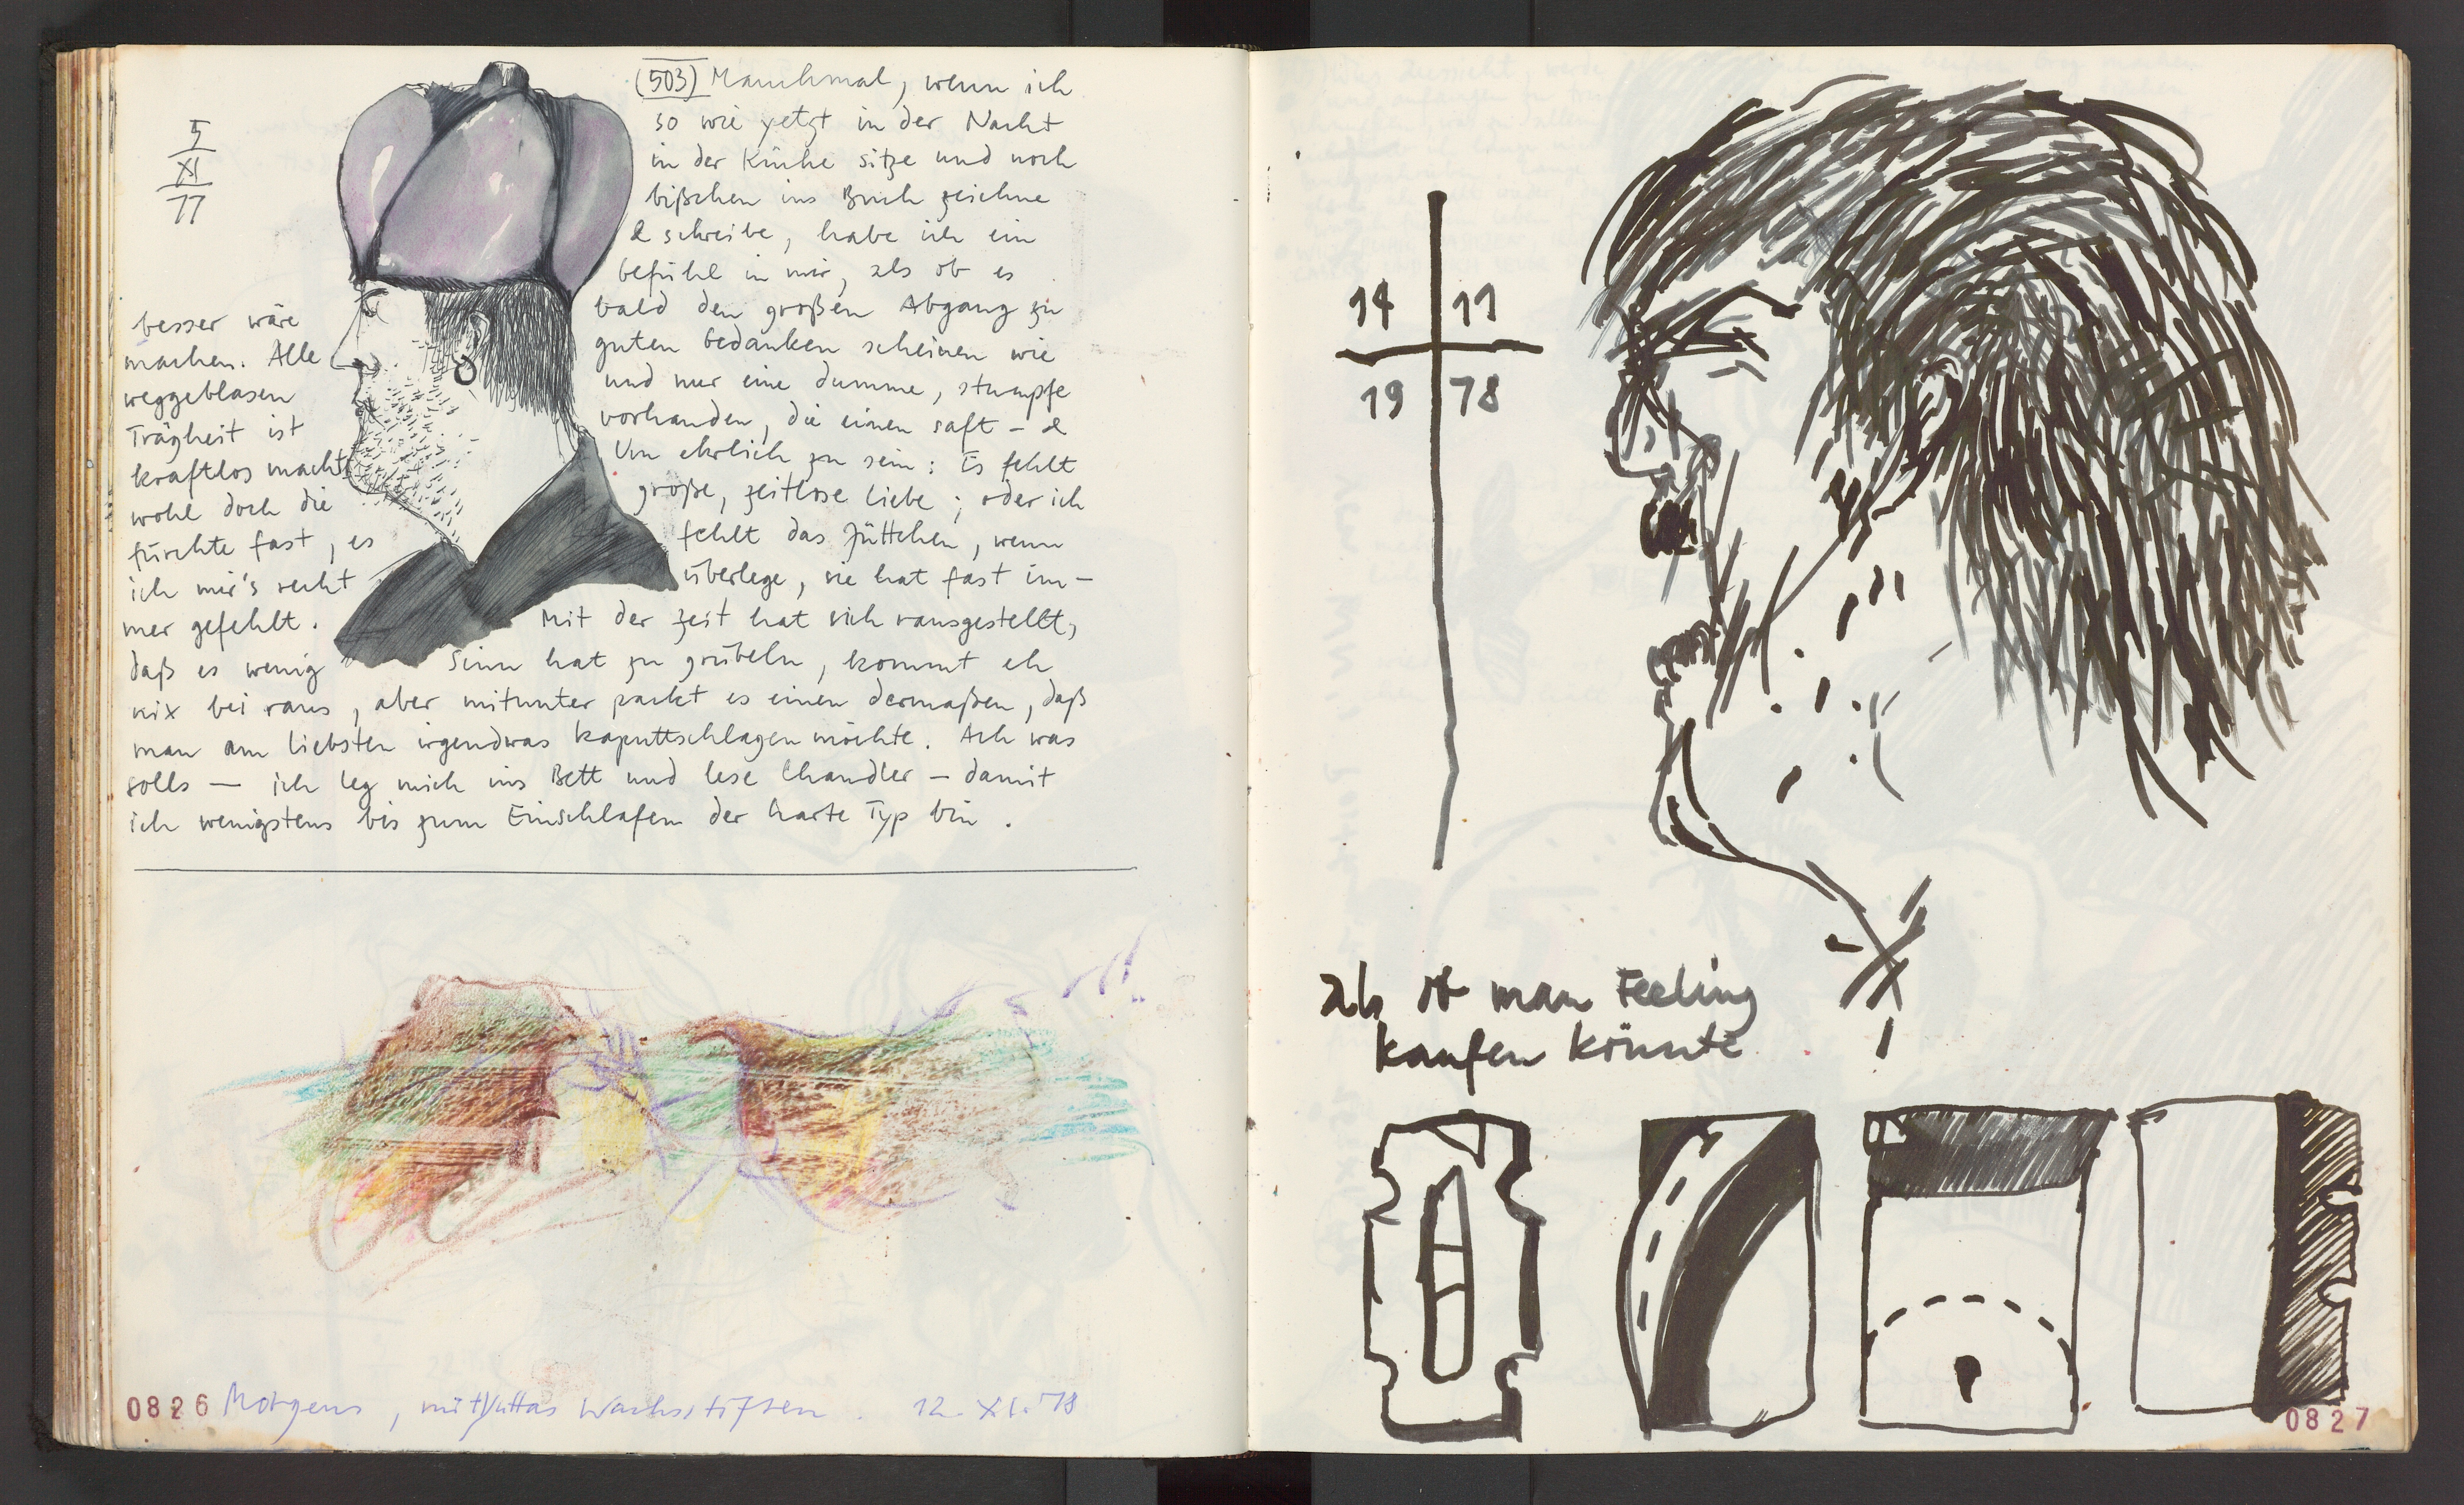 5
XI
77
(503) Manchmal, wenn ich
so wie yetzt in der Nacht
in der Küche sitze und noch
bißchen ins Buch zeichne
& schreibe, habe ich ein
Gefühl in mir, als ob es
besser wäre bald den großen Abgang zu
machen. Alle guten Gedanken scheinen wie
weggeblasen und nur eine dumme, stumpfe
Trägheit ist vorhanden, die einen saft- &
kraftlos macht Um ehrlich zu sein: Es fehlt
wohl doch die große, zeitlose Liebe; oder ich
fürchte fast, es fehlt das Jüttchen, wenn
ich mir's recht überlege, sie hat fast im-
mer gefehlt. Mit der Zeit hat sich rausgestellt,
daß es wenig Sinn hat zu grübeln, kommt eh
nix bei raus, aber mitunter packt es einen dermaßen, daß
man am liebsten irgendwas kaputtschlagen möchte. Ach was
solls — ich leg mich ins Bett und lese Chandler – damit
ich wenigstens bis zum Einschlafen der harte Typ bin.
0826 Morgens, mit Juttas Wachsstiften. 12. XI. '78
14 11
19 78
als ob man Feeling
kaufen könnte !
0827